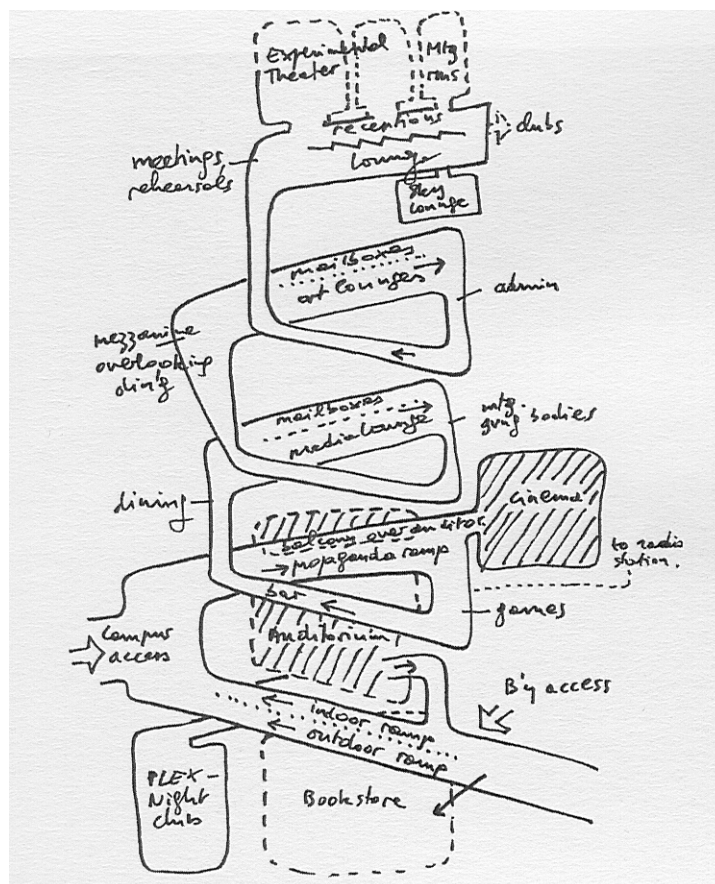 Experimental
Theater
Mtg
rms
receptions
clubs
lounge
meetings,
rehearsals
Sky
Lounge
mailboxes
art lounges
admin
mezzanine
overlooking
din'g
mailboxes
media lounge
mtg.
gvng bodies
dining
cinema
balcony over auditor.
propaganda ramp
to radio
station.
bar
games
Campus
access
Auditorium
B'y access
indoor ramp
outdoor ramp
PLEX -
Night
club
Bookstore